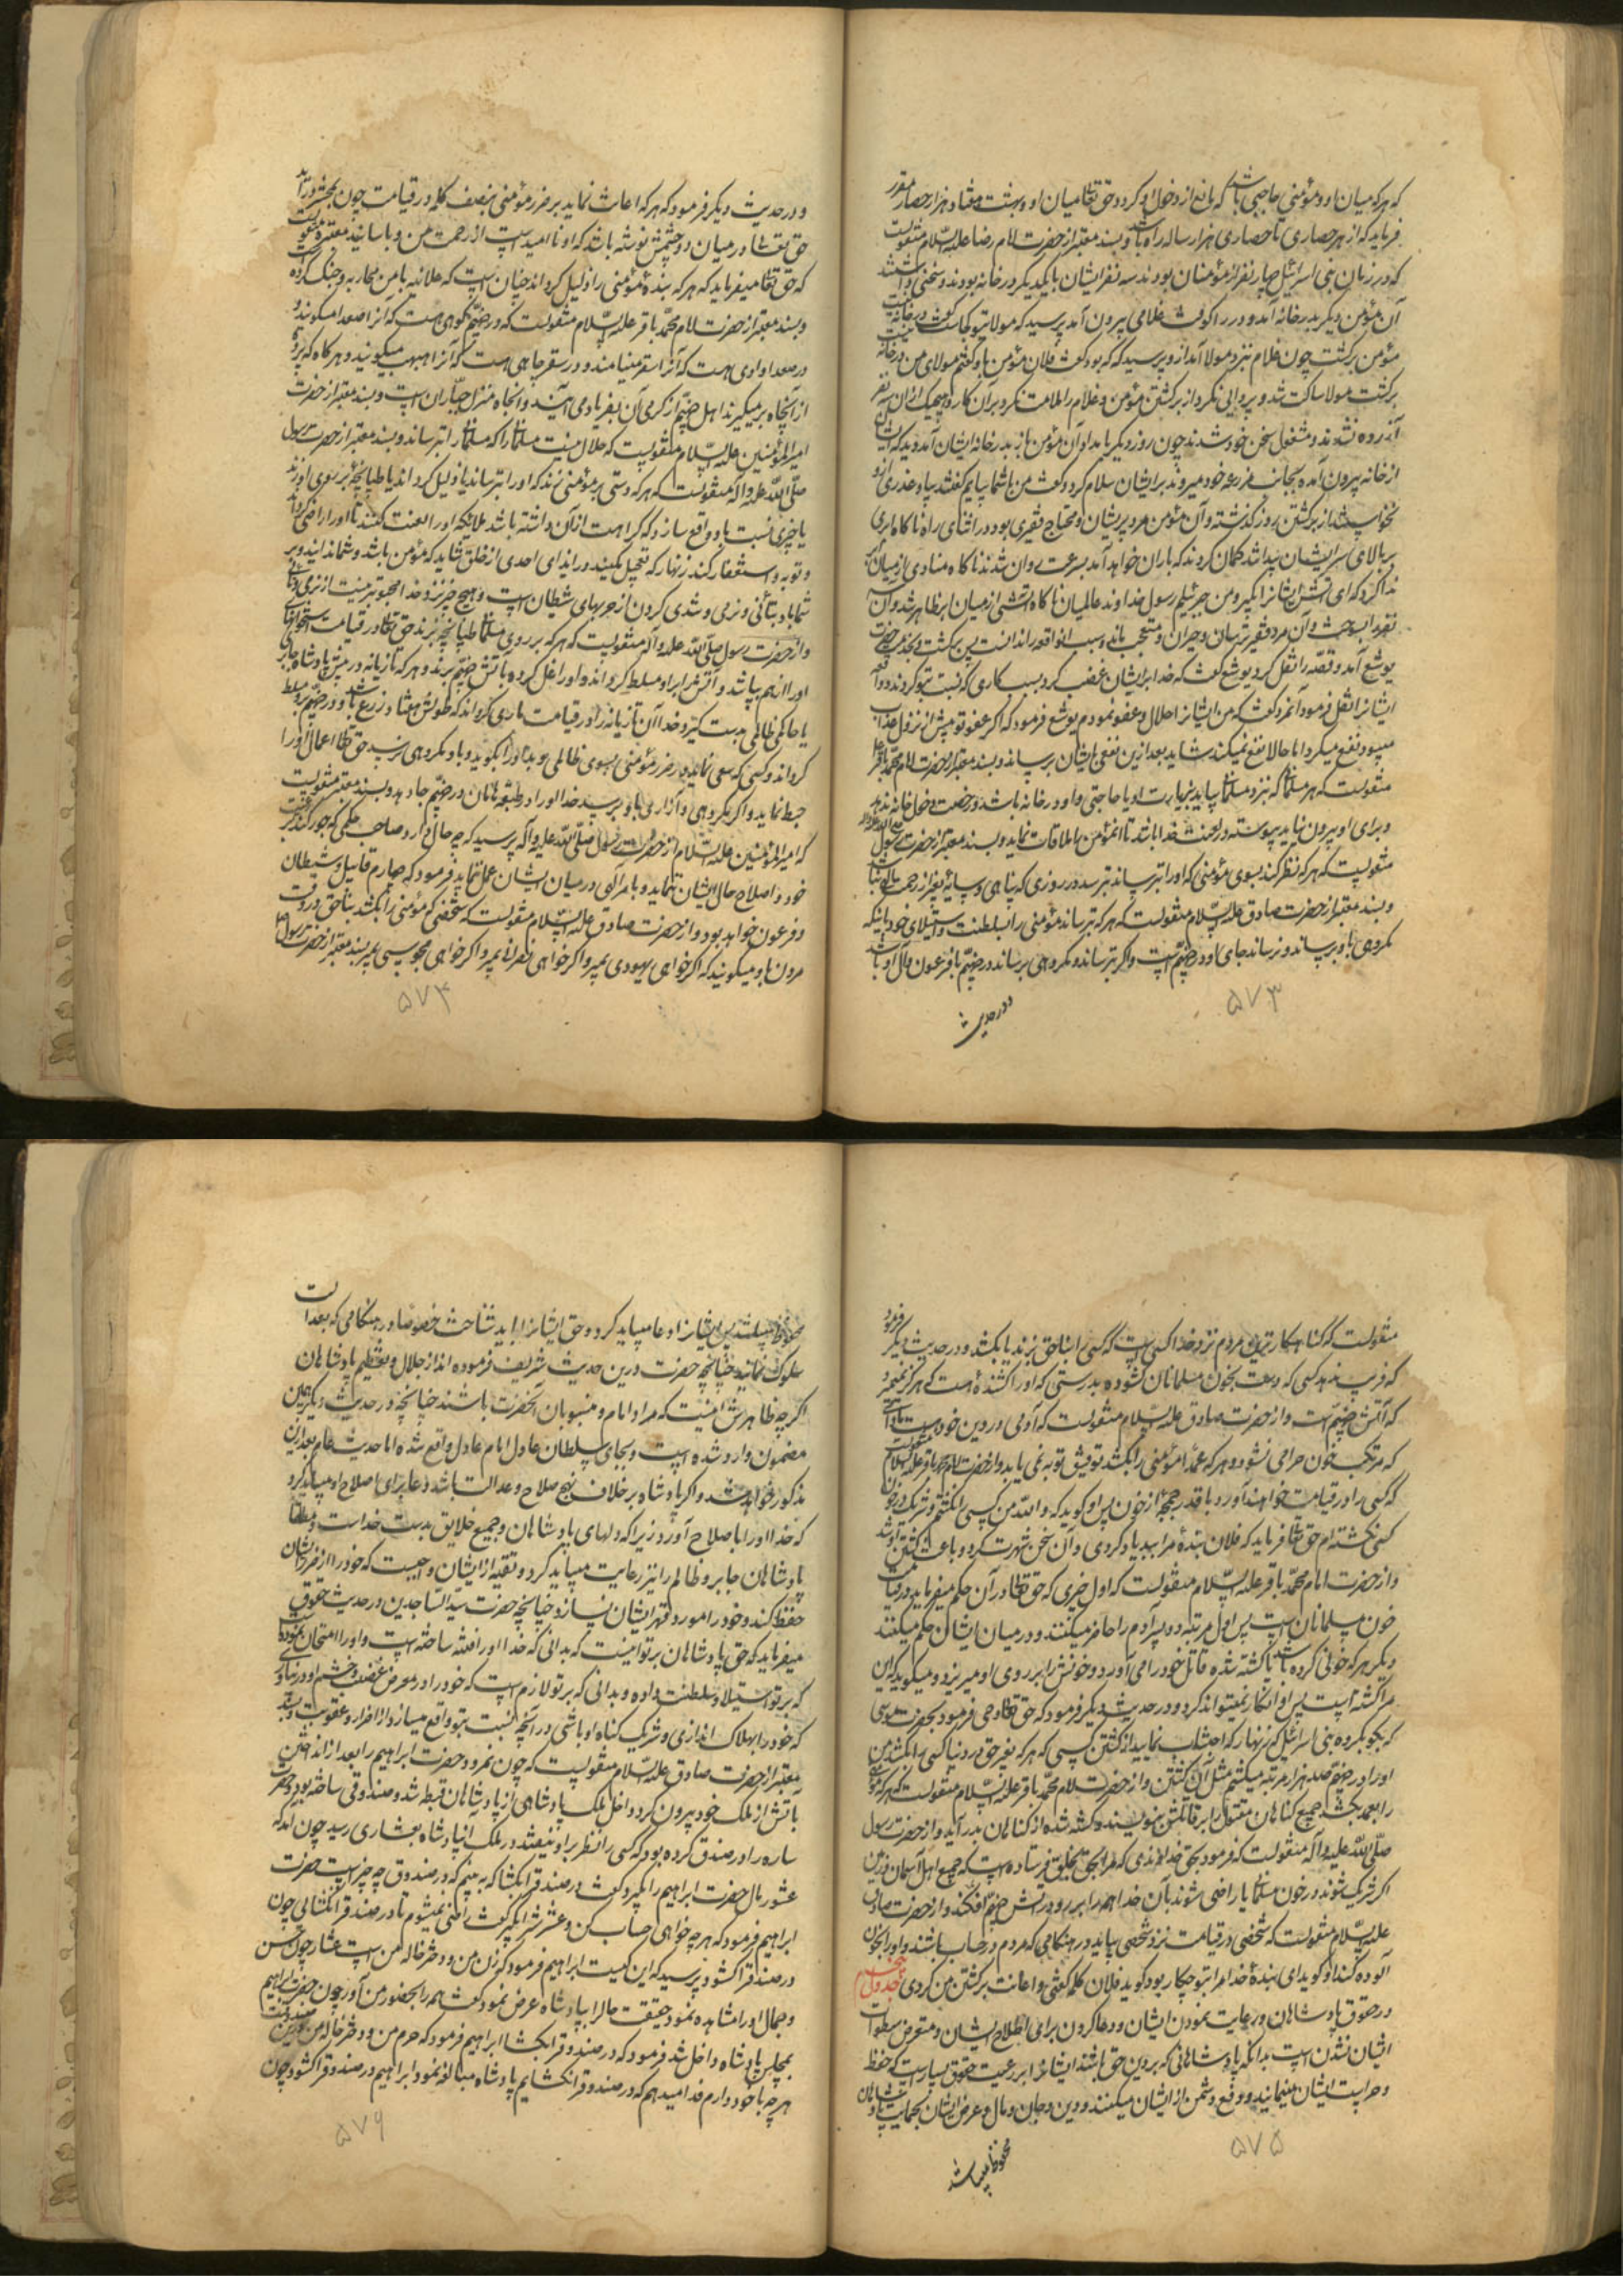 که هرکه میان او و مؤمنی حاجبی باشد که مانع از دخول او گردد حق تعالی میان او و بهشت هفتاد هزار حصار مقرر
فرماید که از هر حصاری تا حصاری هزار ساله راه باشد و بسند معتبر از حضرت امام رضا علیه السّلام منقولست
که در زمان بنی اسرائیل چهار نفر از مؤمنان بودند سه نفر ایشان با یکدیگر در خانه بودند و سخنی داشتند
آن مؤمن دیگر بدر خانه آمد و در را کوفت غلامی بیرون آمد پرسید که مولا تو کجاست گفت در خانه نیست
مؤمن برگشت چون غلام نزد مولا آمد از او پرسید که که بود گفت فلان مؤمن باو گفتم مولای من در خانه نیست
برگشت مولا ساکت شد و پروایی نکرد از برگشتن مؤمن و غلام را ملامت نکرد بر آن کار و هیچیک از آن سه نفر
آزرده نشدند و مشغول سخن خود شدند چون روز دیگر بامداد آن مؤمن باز بدر خانه ایشان آمد دید که ایشان
از خانه بیرون آمده بجانب مزرعه خود میروند بر ایشان سلام کرد و گفت من با شما بیایم گفتند بیا و عذری از او
نخواستند از برگشتن روز گذشته و آن مؤمن مرد پریشان و محتاج فقیری بود در اثنای راه ناگاه ابری
بر بالای سر ایشان پیدا شد گمان کردند که باران خواهد آمد بسرعت روان شدند ناگاه منادی از میان ابر
ندا کرد که ای آتش ایشانرا بگیر و من جبرئیلم رسول خداوند عالمیان ناگاه آتشی از میان ابر ظاهر شد و آن سه
نفر را سوخت و آن مرد فقیر ترسان و حیران و متعجب ماند و سبب آنواقعه را ندانست پس برگشت و بخدمت حضرت
یوشع آمد و قصّه را نقل کرد یوشع گفت که خدا بر ایشان غضب کرد بسبب کاری که نسبت بتو کردند و واقعه
ایشانرا نقل فرمود آنمرد گفت که من ایشانرا حلال و عفو نمودم یوشع فرمود که اگر عفو تو پیش از نزول عذاب
میبود نفع میکرد اما حالا نفع نمیکند شاید بعد ازین نفعی بایشان برساند و بسند معتبر از حضرت امام محمّد باقر ع
منقولست که هر مسلمانی که نزد مسلمانی بیاید بزیارت او یا حاجتی و او در خانه باشد و رخصت دخول خانه ندهد
و برای او بیرون نیاید پیوسته در لعنت خدا باشد تا آنمؤمن با ملاقات نماید و بسند معتبر از حضرت رسول صلی الله علیه و آله
منقولست که هرکه نظر کند بسوی مؤمنی که او را بترساند بترسد در روزی که پناهی و سایه بغیر از رحمت الهی نباشد
و بسند معتبر از حضرت صادق علیه السّلام منقولست که هرکه بترساند مؤمنی را بسلطنت و استیلای خود باینکه
مکروهی باو برساند و نرساند جای او در جهنّم است و اگر بترساند و مکروهی برساند در جهنّم با فرعون و آل او باشد
و در حدیث
۵۷۳
و در حدیث دیگر فرمود که هرکه اعانت نماید بر ضرر مؤمنی بنصف کلمه در قیامت چون بمحشر در آید
حق تعالی در میان دو چشمش نوشته باشد که او ناامید است از رحمت من و باسانید معتبره منقولست
که حق تعالی میفرماید که هرکه بندهٔ مؤمنی را ذلیل گرداند چنان است که علانیه با من محاربه و جنگ کرده
و بسند معتبر از حضرت امام محمّد باقر علیه السّلام منقولست که در جهنّم کوهی هست که آنرا صعدا میگویند و
در صعدا وادی هست که آنرا سقر مینامند و در سقر چاهی هست که آنرا هبهب میگویند و هرگاه که پرده
از آنچاه بر میگیرند اهل جهنّم از گرمی آن بفریاد می آیند و آنجاه منزل جبّاران است و بسند معتبر از حضرت
امیرالمؤمنین علیه السّلام منقولست که حلال نیست مسلمانی را که مسلمانی را بترساند و بسند معتبر از حضرت رسول
صلّی الله علیه و آله منقولست که هرکه دستی بر مؤمنی زند که او را بترساند یا ذلیل گرداند یا طپانچه بر روی او زند
یا چیزی نسبت باو واقع سازد که کراهت از آن داشته باشد ملائکه او را لعنت کنند تا او را راضی گرداند
و توبه و استغفار کند زنهار که تعجیل مکنید در ایذای احدی از خلق شاید که مؤمن باشد و شما ندانید و بر
شما باد بتأنّی و نرمی و تندی کردن از حربهای شیطان است و هیچ چیز نزد خدا محبوبتر نیست از نرمی و تأنی
و از حضرت رسول صلّی الله علیه و آله منقولست که هرکه بر روی مسلمانی طپانچه بزند حق تعالی در قیامت استخوانهای
او را از هم بپاشد و آتش را بر او مسلط گرداند و او را غل کرده بآتش جهنّم برند و هرکه تازیانه در پیش پادشاه جابر
یا حاکمی ظالمی بدست گیرد خدا آن تازیانه را در قیامت ماری گرداند که طولش هفتاد زرع باشد و در جهنّم بر او مسلط
گرداند و کسی که سعی نماید در ضرر مؤمنی بسوی ظالمی و بد او را بگوید و باو مکروهی نرسد حق تعالی اعمال او را
حبط نماید و اگر مکروهی و آزاری باو برسد خدا او را در طبقه هامان در جهنّم جا دهد و بسند معتبر منقولست
که امیرالمؤمنین علیه السّلام از حضرت رسول صلّی الله علیه و آله پرسید که چه حال دارد صاحب حکمی که جور کند بر رعیت
خود و اصلاح حال ایشان ننماید و بامر آلهی در میان ایشان عمل ننماید فرمود که چهارم قابیل و شیطان
و فرعون خواهد بود و از حضرت صادق علیه السّلام منقولست که شخصی که مؤمنی را بکشد بناحق در وقت
مردن باو میگویند که اگر خواهی یهودی بمیر و اگر خواهی نصرانی بمیر و اگر خواهی مجوسی بمیر بسند معتبر از حضرت رسول ص
۵۷۴
منقولست که گناهکارترین مردم نزد خدا کسی است که کسی را بناحق بزند یا بکشد و در حدیث دیگر فرمود
که فریب ندهد کسی که دست بخون مسلمانان گشوده بدرستی که او را کشندهٔ هست که هرگز نمیمیرد
که آتش جهنّم است و از حضرت صادق علیه السّلام منقولست که آدمی در دین خود است مادامی
که مرتکب خون حرامی نشود و هرکه عمداً مؤمنی را بکشد توفیق توبه نمی یابد و از حضرت امام محمد باقر علیه السلام منقولست
که کسی را در قیامت خواهند آورد با قدر محجمه از خون پس او گوید که والله من کسی را نکشتم و شریک در خون
کسی نگشته ام حق تعالی فرماید که فلان بندهٔ مرا ببدی یاد کردی و آن سخن شهرت کرد و باعث کشتن او شد
و از حضرت امام محمّد باقر علیه السّلام منقولست که اول چیزی که حق تعالی در آن حکم میفرماید در قیامت
خون مسلمانان است پس اول مرتبه دو پسر آدم را حاضر میکنند و در میان ایشان حکم میکنند
دیگر هرکه خونی کرده باشد تا کشته شده قاتل خود را می آورد و خونش را بر روی او میریزد و میگوید که این
مرا کشته است پس او انکار نمیتواند کرد و در حدیث دیگر فرمود که حق تعالی وحی فرمود بحضرت موسی
که بگو بگروه بنی اسرائیل که زنهار که اجتناب نمایید از کشتن کسی که هرکه بغیر حق در دنیا کسی را بکشد من
او را در جهنّم صد هزار مرتبه میکشم مثل آن کشتن و از حضرت امام محمّد باقر علیه السّلام منقولست که هرکه مؤمنی
را بعمد بکشد جمیع گناهان مقتول را بر قاتلش بنویسند و کشته شده از گناهان بدر آید و از حضرت رسول
صلّی الله علیه و آله منقولست که فرمود بحق خداوندی که مرا بحق بخلق فرستاده است که جمیع اهل آسمان و زمین
اگر شریک شوند در خون مسلمانی یا راضی شوند بآن خدا همه را بر رو در آتش جهنّم افکند و از حضرت صادق
علیه السّلام منقولست که شخصی در قیامت نزد شخصی بیاید در هنگامی که مردم در حساب باشند و او را بخون
آلوده کند او گوید ای بندهٔ خدا مرا بتو چکار بود گوید فلان کلمه گفتی و اعانت بر کشتن من کردی جدول پنجم
در حقوق پادشاهان و رعایت نمودن ایشان و دعا کردن برای اصلاح ایشان و متعرض سطوات
ایشان نشدن است بدانکه پادشاهانی که بر دین حق باشند ایشانرا بر رعیت حقوق بسیار است که حفظ
و حراست ایشان مینمایند و دفع دشمن از ایشان میکنند و دین و جان و مال و عرض ایشان بحمایت پادشاهان
محفوظ میباشد
۵۷۵
محفوظ میباشد پس ایشانرا دعا میباید کرد و حق ایشانرا باید شناخت خصوصاً در هنگامی که بعدالت
سلوک نمایند چنانچه حضرت درین حدیث شریف فرموده اند از جلال و تعظیم پادشاهان
اگر چه ظاهرش اینست که مراد امام و منسوبان آنحضرت باشند چنانچه در حدیث دیگر همین
مضمون وارد شده است و بجای سلطان عادل امام عادل واقع شده اما حدیث عام بعد ازین
مذکور خواهد شد و اگر پادشاه بر خلاف نهج صلاح و عدالت باشد دعا برای اصلاح او میباید کرد
که خدا او را باصلاح آورد زیرا که دلهای پادشاهان و جمیع خلایق بدست خداست و مطلقا
پادشاهان جابر و ظالم را نیز رعایت میباید کرد و تقیه از ایشان واجبست که خود را از ضرر ایشان
حفظ کند و خود را مورد قهر ایشان نسازد چنانچه حضرت سیّد السّاجدین در حدیث حقوق
میفرماید که حق پادشاهان بر تو اینست که بدانی که خدا او را فتنه ساخته است و او را امتحان نموده است
که بر تو استیلا و سلطنت داده و بدانی که بر تو لازم است که خود را در معرض غضب و خشم او در نیاوری
که خود را بهلاک اندازی و شریک گناه او باشی در آنچه نسبت بتو واقع میسازد از اضرار و عقوبت و بسند
معتبر از حضرت صادق علیه السّلام منقولست که چون نمرود حضرت ابراهیم را بعد از انداختن
بآتش از ملک خود بیرون کرد داخل ملک پادشاهی از پادشاهان قبطه شد و صندوقی ساخته بود و حضرت
ساره را در صندوق کرده بود که کسی را نظر بر او نیفتد در ملک آنپادشاه بعشاری رسید چون آمد که
عشور مال حضرت ابراهیم را بگیرد گفت در صندوقرا بگشا که ببینم که در صندوق چه چیز است حضرت
ابراهیم فرمود که هر چه خواهی حساب کن و عشرش را بگیر گفت راضی نمیشوم تا در صندوقرا نگشائی چون
در صندوقرا گشود پرسید که این کیست ابراهیم فرمود که زن من و دختر خاله من است عشار چون حسن
و جمال او را مشاهده نمود حقیقت حالرا بپادشاه عرض نمود گفت همه را بحضور من آور چون حضرت ابراهیم
بمجلس پادشاه داخل شد فرمود که در صندوقرا بگشا ابراهیم فرمود که حرم من و دختر خاله من درین صندوقست
هر چه با خود دارم فدا میدهم که در صندوقرا نگشایم پادشاه مبالغه نمود ابراهیم در صندوقرا گشود چون
۵۷۶